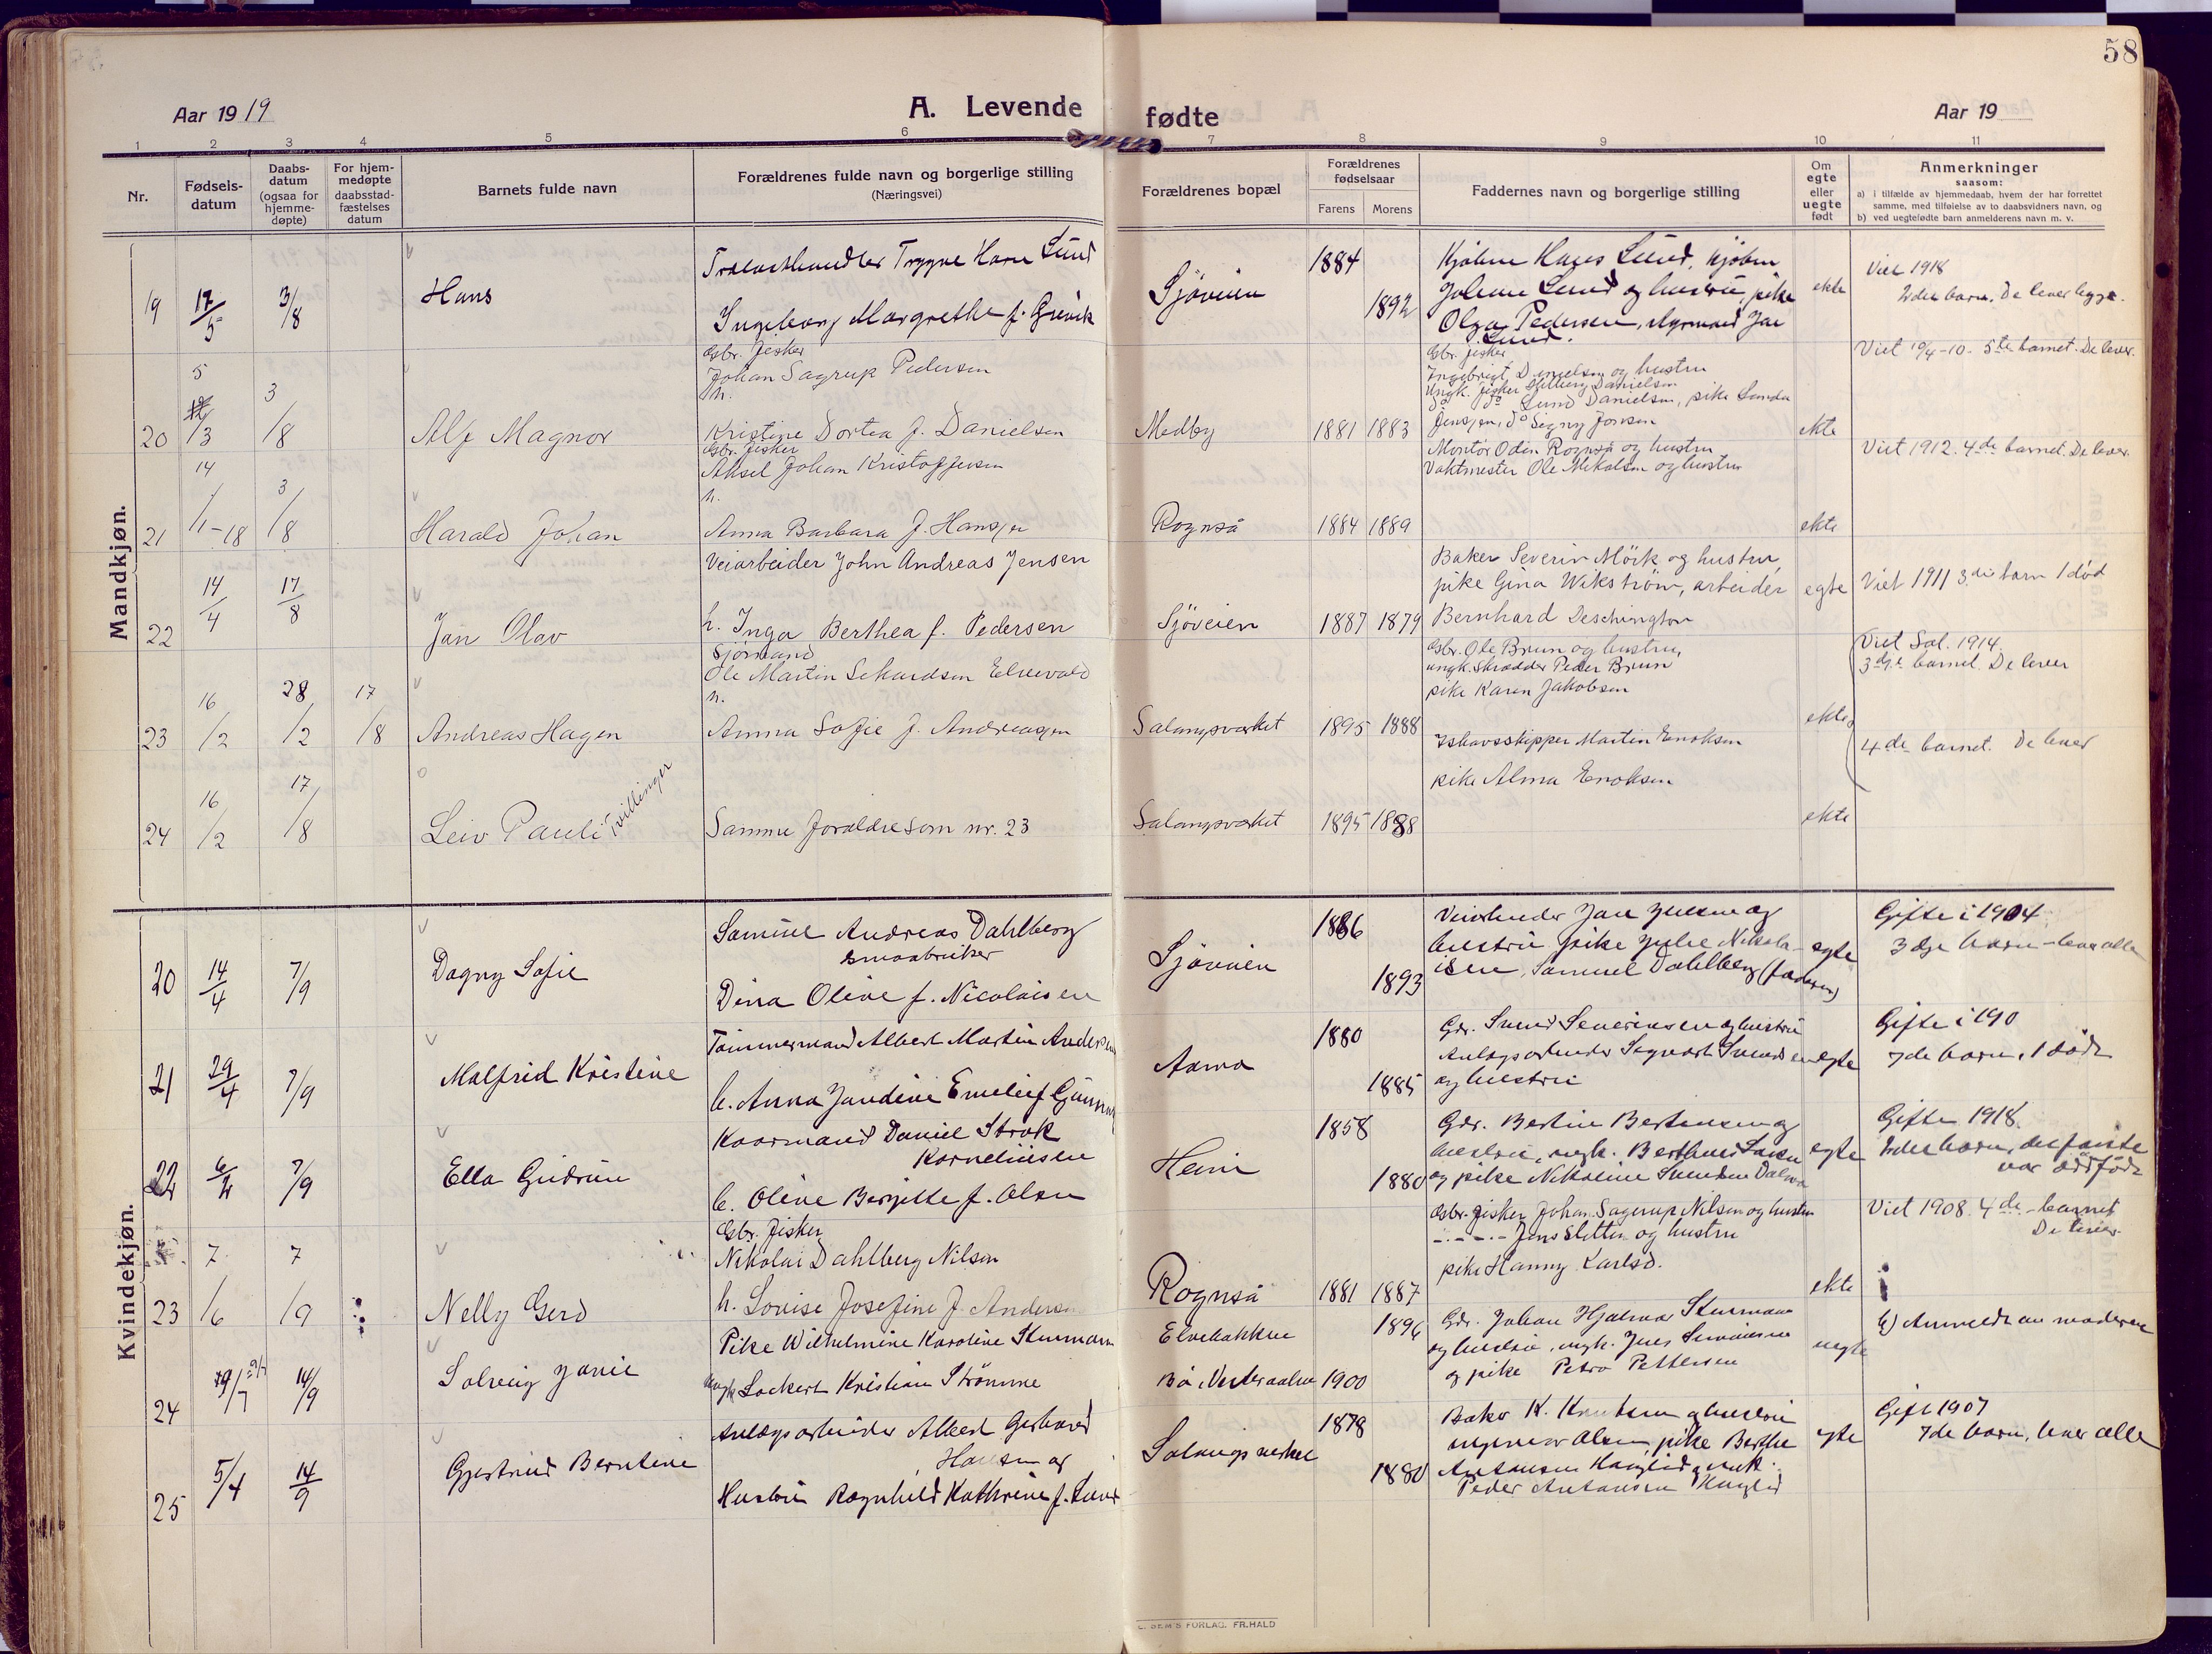 58
Aar 1919
A. Levende
fødte
Aar 19
1 2 3 4 5 6 7 8 9 10 11
Nr.
Fødsels-
datum
Daabs-
datum
(ogsaa for
hjemme-
døpte)
For hjem-
medøpte
daabsstad-
fæstelses
datum
Barnets fulde navn
Forældrenes fulde navn og borgerlige stilling
(Næringsvei)
Forældrenes bopæl
Forældrenes
fødselsaar
Farens Morens
Faddernes navn og borgerlige stilling
Om
egte
eller
uegte
født
Anmerkninger
saasom:
a) i tilfælde av hjemmedaab, hvem der har forrettet
samme, med tilføielse av to daabsvidners navn, og
b) ved uegtefødte barn anmelderens navn m. v.
Mandkjøn.
19 17/5 3/8
Hans
Trygve Lund
Ingeborg Margrethe f.
Sjøveien
1884
1892
Hans Lund,
Johan Lund og hustru, pike
Olga Pedersen,
Lund.
ekte
Viet 1918
2det barn. De lever begge.
20 5/3 3/8
Alf Magnor
Gbr. fisker
Johan Sagrup Pedersen
h.
Kristine Dortea f. Danielsen
Medby
1881 1883
Gbr. fisker
Ingebrigt Danielsen og hustru
Ungk. fisker Danielsen
do do Lund Danielsen, pike
Jensen, do Signy Jonsen
ekte
Viet 10/4-10. 5te barnet. De lever.
21 14/1-18 3/8
Harald Johan
Gbr. fisker
Aksel Johan Kristoffersen
h.
Anna Barbara f. Hansen
Rognså
1884 1889
Montør Odin Rognså og hustru
Vaktmester Ole Mikalsen og hustru
ekte
Viet 1912. 4de barnet. De lever.
22 14/4 17/8
Jan Olav
Veiarbeider John Andreas Jensen
h. Inga Berthea f. Pedersen
Sjøveien
1887 1879
Baker Severin Mörk og hustru,
pike Gina Wikström, arbeider
Bernhard Deschington
egte
Viet 1911 3die barn 1 død
23 16/2 28/2 17/8
Andreas Hagen
Sjømand
Ole Martin Elvevald
h.
Anna Sofie f. Andreassen
Salangsverket
1895 1888
Gbr. Ole Brun og hustru,
ungk. skrædder Peder Brun
pike Karen Jakobsen
ekte
Viet Sal. 1914.
3dje barnet. De lever
24 16/2 17/8
Leiv Pauli
tvillinger
Samme foreldre som nr. 23
Salangsverket
1895 1888
Ishavsskipper Martin Enoksen
pike Alma Enoksen
ekte
4de barnet. De lever
Kvindekjøn.
20 14/4 7/9
Dagny Sofie
Samuel Andreas Dahlberg
smaabruker
Dina Oline f. Nicolaisen
Sjøveien
1886
1893
Veiarbeider Jan og
hustru pike Nikola-
isen, Samuel Dahlberg (faderen)
egte
Gifte i 1904
3dje barn - lever alle
21 29/4 7/9
Malfrid Kristine
Tømmermand Albert Martin
h. Anna Jandine Emelie f.
1880
1885
Gdr. Svend Severinsen og hustru
Anlægsarbeider Sigvart Svendsen
og hustru
egte
Gifte i 190
7de barn, 1 død
22 7/9
Ella Gudrun
Daniel Strøk
Korneliusen
h. Oline Bergitte f. Olsen
1858
1880
Gdr. Bertin Bertensen og
hustru, ungk.
og pike Nikoline Svendsen
egte
Gifte 1918.
2det barn, det første
var dødfødt
23 7/6 7/9
Nelly Gerd
Gbr. fisker
Nikolai Dahlberg Nilsen
h. Lovise Josefine f.
Rognså
1881 1887
Gbr. fisker Johan Sagerup Nilsen og hustru
-.-.- Jens Sletten og hustru
pike Hanny Karlsd.
ekte
Viet 1908. 4de barnet
De lever
24 19/7 14/9
Solveig Janie
Pike Wilhelmine Karoline
Ungk Lockert Kristian Strømme
Elvebakken
Bø i Vesteraalen
1896
1900
Gdr. Johan Hjalmar
og hustru, ungk. Jens
og pike Petra Pettersen
uegte
b) Anmeldt av moderen
25 5/4 14/9
Gjertrud Berntine
Anlægsarbeider Albert Gerhard
Hansen og
Hustru Ragnhild Kathrine f.
Salangsverket
1878
1880
Baker K. Knutsen og hustru
Olsen, pike Berthe
Antonsen
Peder Antonsen
egte
Gift 1907
7de barn, lever alle
FORLAG. FR.HALD